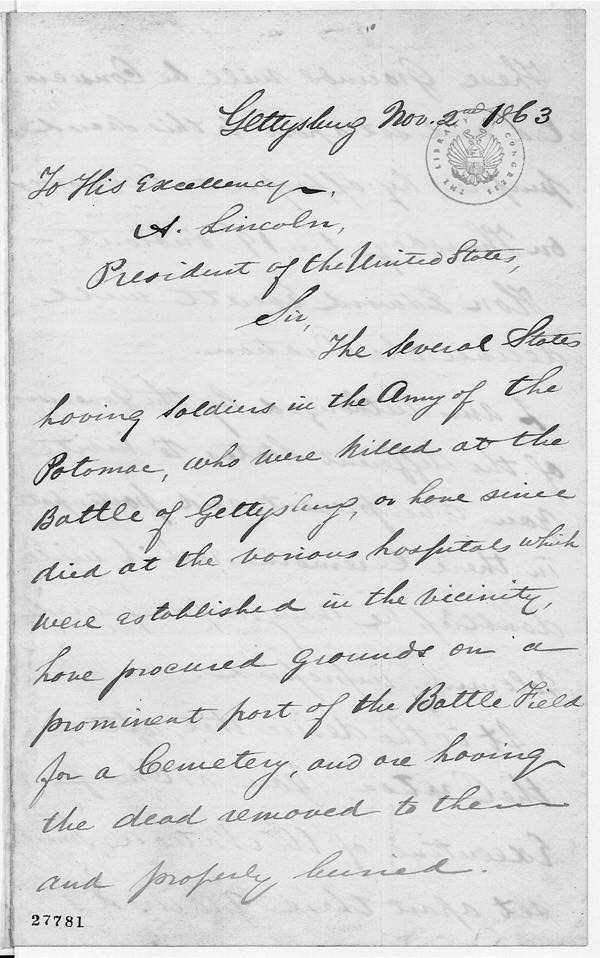 Gettysburg Nov. 2nd 1863
THE LIBRARY OF CONGRESS
To His Excellency,
A. Lincoln,
President of the United States,
Sir,
The Several States
having soldiers in the Army of the
Potomac, who were killed at the
Battle of Gettysburg, or have since
died at the various hospitals which
were established in the vicinity,
have procured grounds on a
prominent part of the Battle Field
for a Cemetery, and are having
the dead removed to them
and properly buried.
27781